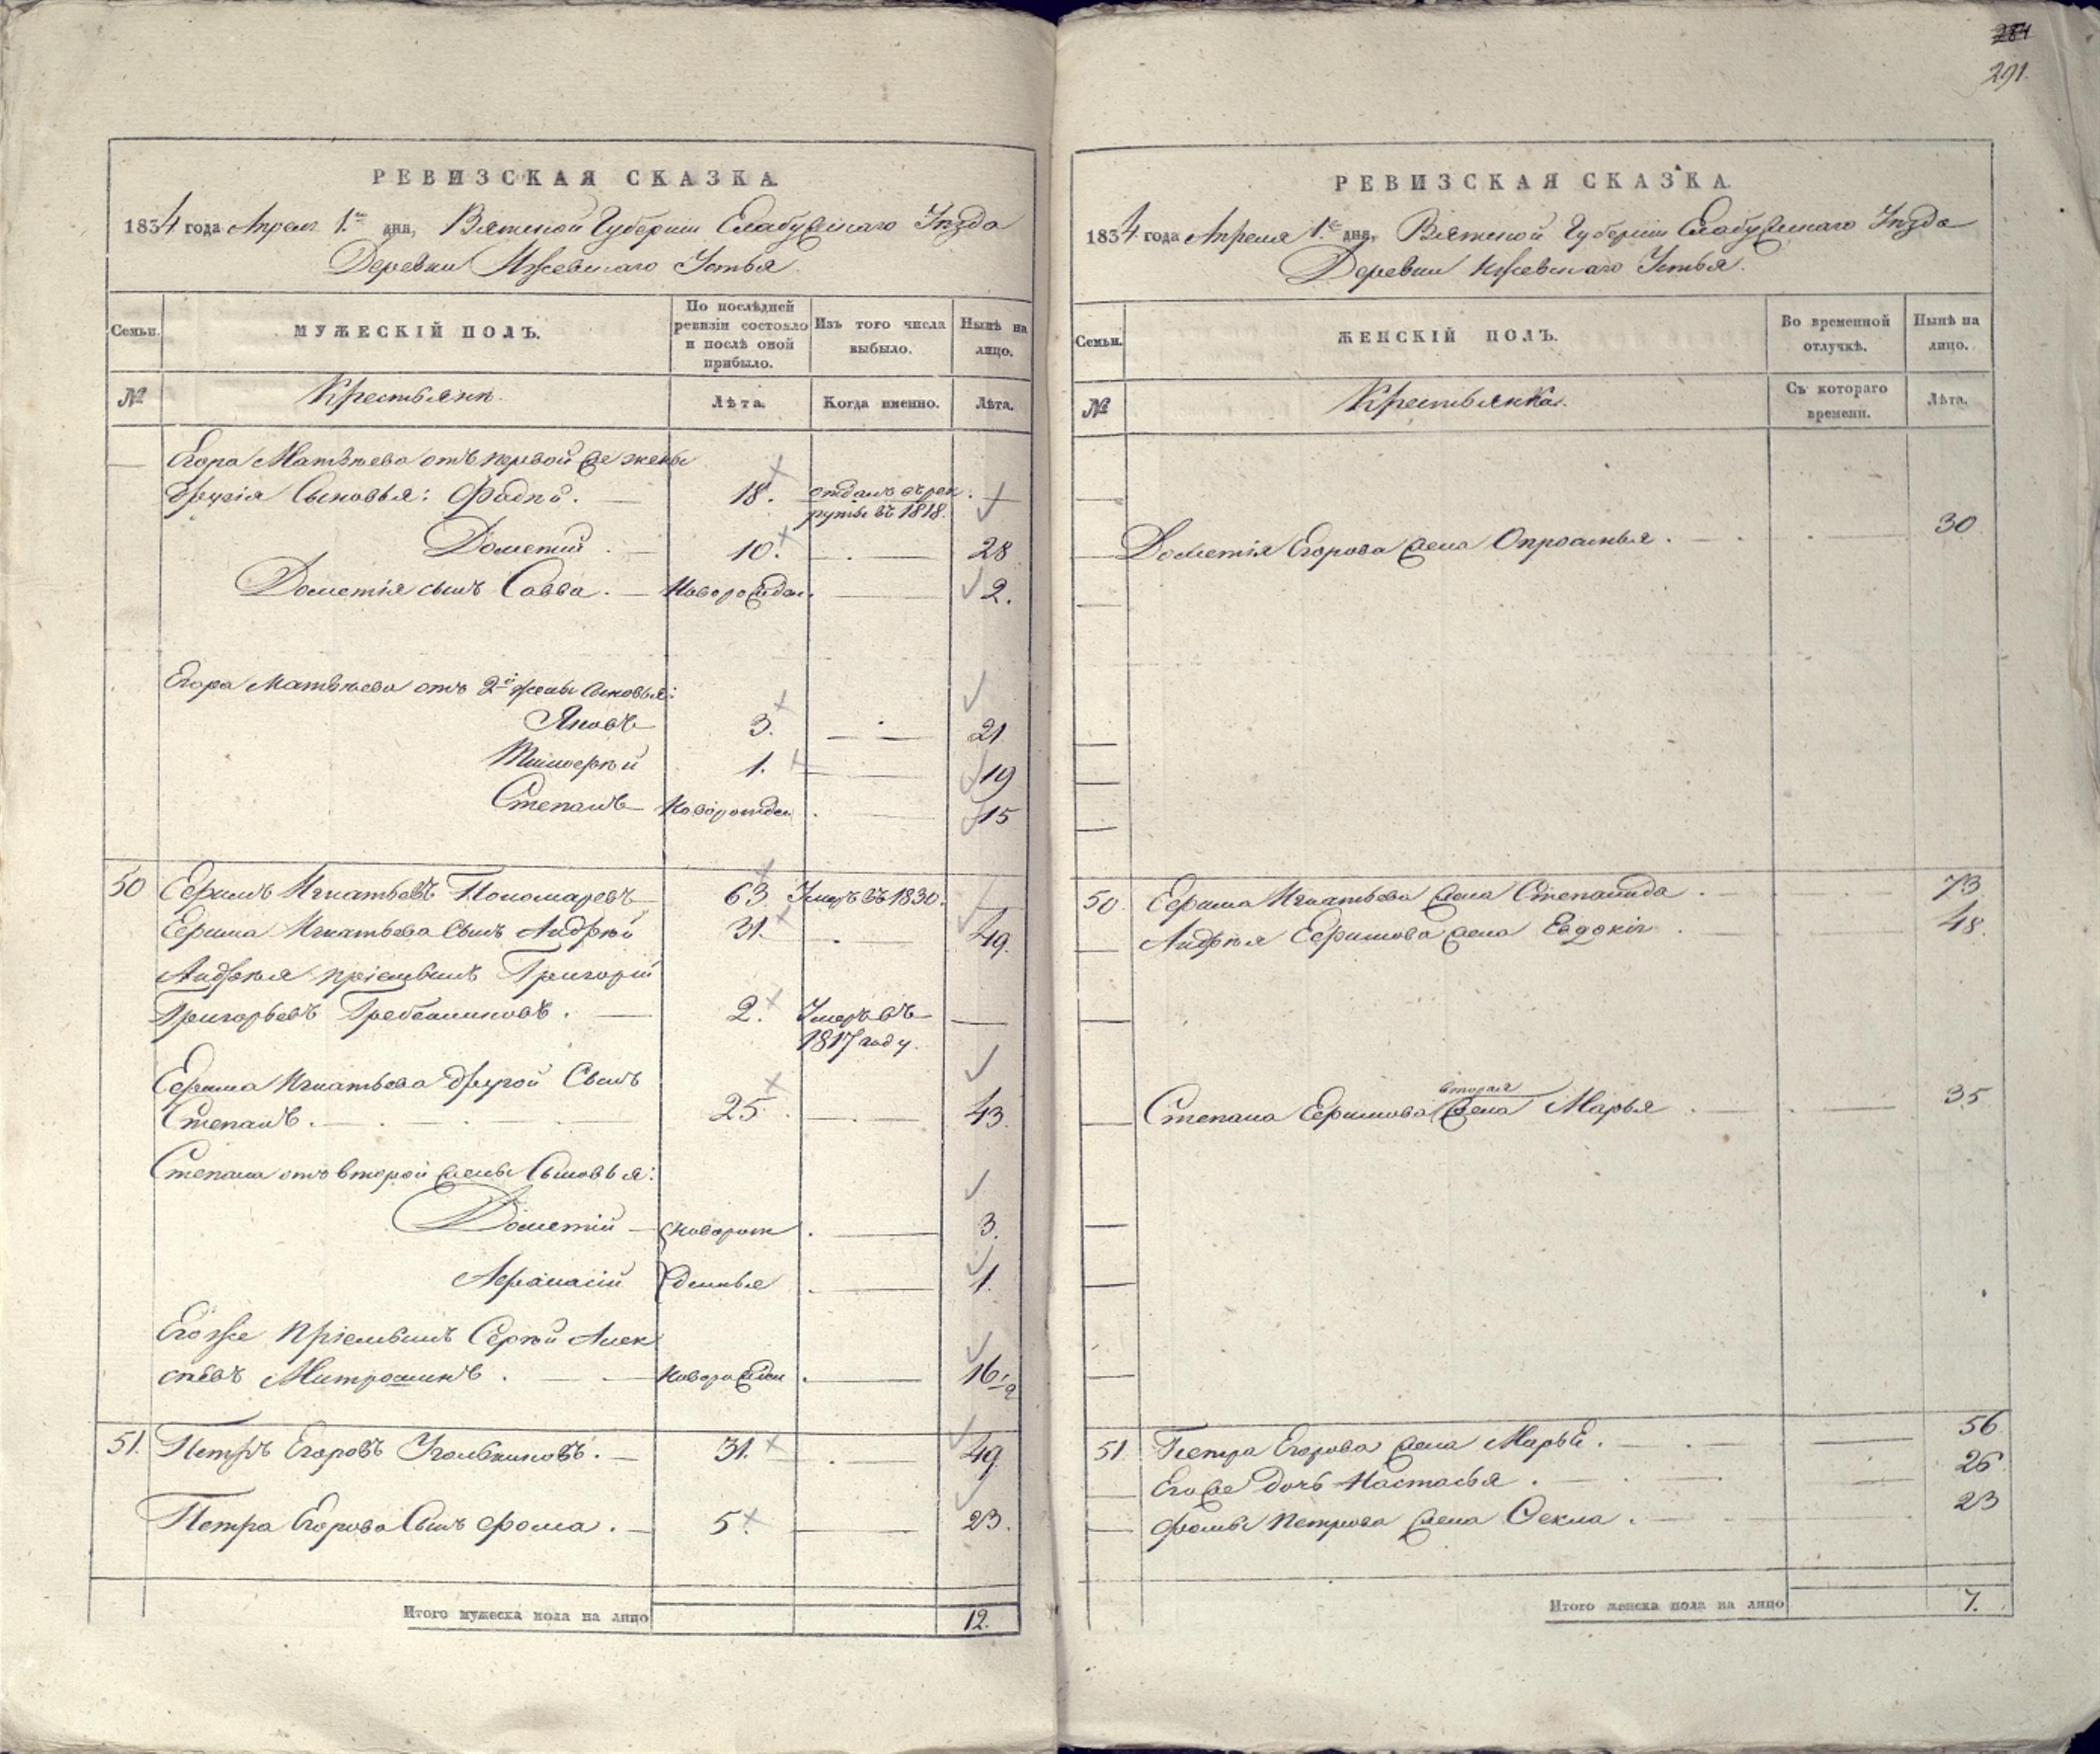 РЕВИЗСКАЯ СКАЗКА.
1834 года Апреля 1.го дня, Вятской Губерніи Елабужскаго Уѣзда
Деревни Ижевскаго Устья.
Семьи.
МУЖЕСКІЙ ПОЛЪ.
По послѣдней ревизіи состояло и послѣ оной прибыло.
Изъ того числа выбыло.
Нынѣ на лицо.
№
Крестьянѣ.
Лѣта.
Когда именно.
Лѣта.
Егора Матвѣева отъ первой же жены
другія Сыновья: Фадѣй. 18. отданъ въ рек
руты въ 1818.
Дометій. 10. 28
Дометія сынъ Савва. Новорожден. 2.
Егора Матвѣева отъ 2й жены сыновья:
Яковъ 3. 21
Тимофѣй 1. 19
Степанъ Новорожден 15
50 Ефимъ Игнатьевъ Пономаревъ 63. Умеръ въ 1830.
Ефима Игнатьева Сынъ Андрѣй 31. 49.
Андрѣя пріемышъ Григорій
Григорьевъ Гребенщиковъ. 2. Умеръ въ
1817 году.
Ефима Игнатьева другой Сынъ
Степанъ. 25. 43.
Степана отъ второй жены Сыновья:
Дометій новорож 3.
Афанасій денныя 1.
Егоже пріемышъ Сергѣй Алек
сѣевъ Митрошинъ. Новорожден 16 1/2
51. Петръ Егоровъ Угольниковъ. 31. 49.
Петра Егорова Сынъ Фома. 5. 23.
Итого мужеска пола на лицо 12.
284
291.
РЕВИЗСКАЯ СКАЗКА.
1834 года Апреля 1.го дня, Вятской Губерніи Елабужскаго Уѣзда
Деревни Ижевскаго Устья.
Семьи.
ЖЕНСКІЙ ПОЛЪ.
Во временной отлучкѣ.
Нынѣ на лицо.
№
Крестьянка.
Съ котораго времени.
Лѣта.
Дометія Егорова жена Опросинья. 30
50. Ефима Игнатьева жена Степанида. 73
Андрѣя Ефимова жена Евдокія 48.
вторая
Степана Ефимова жена Марья 35
51. Петра Егорова жена Марья. 56
Егоже дочь Настасья. 26.
Фомы Петрова жена Фекла. 23
Итого женска пола на лицо 7.